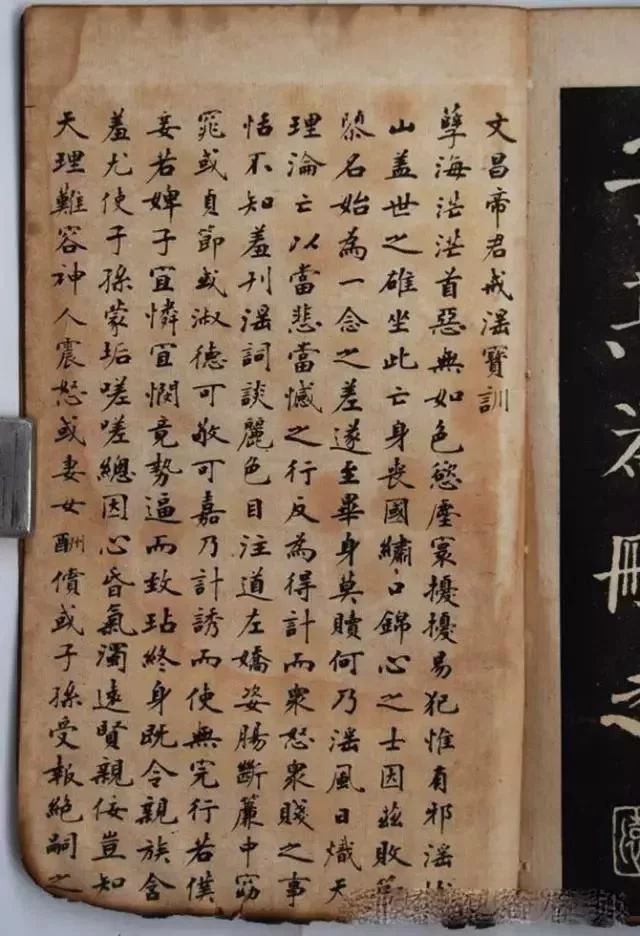 文昌帝君戒滛寶訓
孽海茫茫首惡無如色慾塵寰擾擾易犯惟有邪滛
山盖世之雄坐此亡身喪國繡口錦心之士因茲敗
隳名始為一念之差遂至畢身莫贖何乃滛風日熾天
理淪亡以當悲當憾之行反為得計而衆怒衆賤之事
恬不知羞刊滛詞談麗色目注道左嬌姿腸斷簾中窈
窕或貞節或淑德可敬可嘉乃計誘而使無完行若僕
妾若婢子宜憐宜憫竟勢逼而致玷終身既令親族含
羞尤使子孫蒙垢嗟嗟總因心昏氣濁遠賢親佞豈知
天理難容神人震怒或妻女酬償或子孫受報絕嗣之